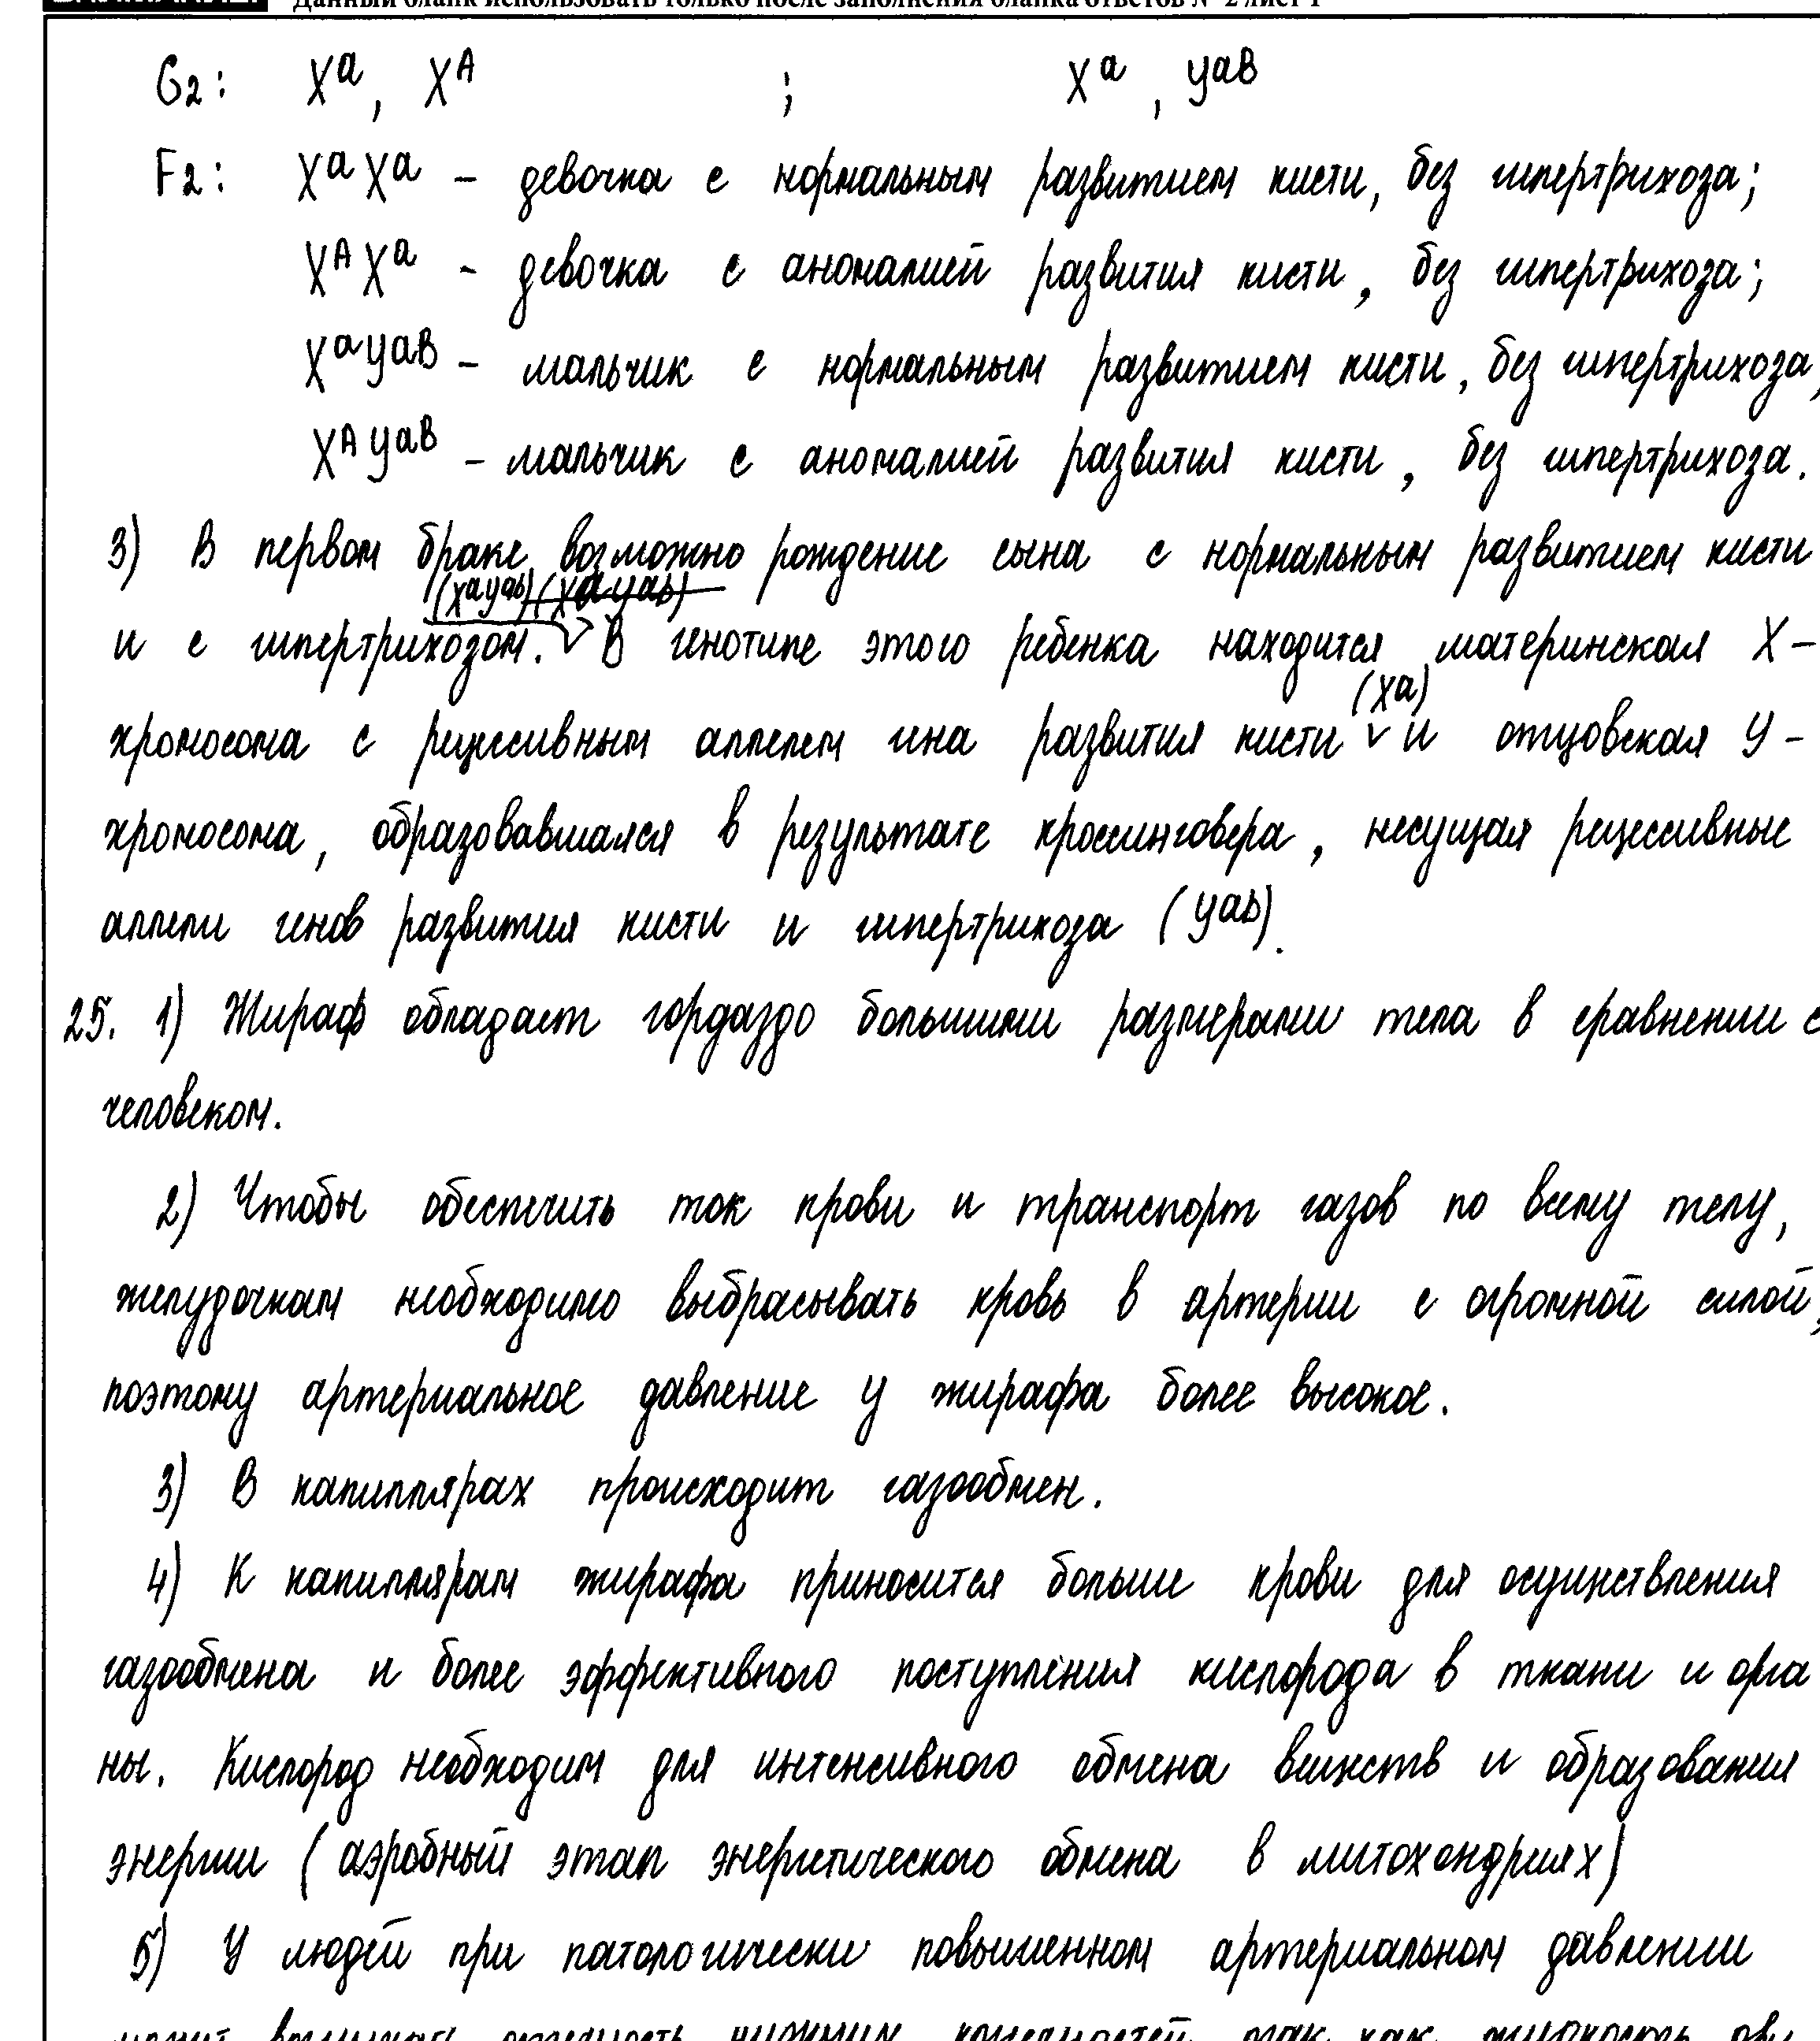 Данный бланк использовать только после заполнения бланка ответов № 2 лист 1
G2: Xᵃ, Xᴬ ; Xᵃ, Yᵃᴮ
F2: XᵃXᵃ – девочка с нормальным развитием кисти, без гипертрихоза;
XᴬXᵃ – девочка с аномалией развития кисти, без гипертрихоза;
XᵃYᵃᴮ – мальчик с нормальным развитием кисти, без гипертрихоза,
XᴬYᵃᴮ – мальчик с аномалией развития кисти, без гипертрихоза.
3) В первом браке возможно рождение сына с нормальным развитием кисти
(XᵃYᵃᵇ) (XᵃYᵃᵇ)
и с гипертрихозом. V В генотипе этого ребенка находится материнская X-
(Xᵃ)
хромосома с рецессивным аллелем гена развития кисти V и отцовская Y-
хромосома, образовавшаяся в результате кроссинговера, несущая рецессивные
аллели генов развития кисти и гипертрихоза (Yᵃᵇ).
25. 1) Жираф обладает гордаздо большими размерами тела в сравнении с
человеком.
2) Чтобы обеспечить ток крови и транспорт газов по всему телу,
желудочкам необходимо выбрасывать кровь в артерии с огромной силой,
поэтому артериальное давление у жирафа более высокое.
3) В капиллярах происходит газообмен.
4) К капиллярам жирафа приносится больше крови для осуществления
газообмена и более эффективного поступления кислорода в ткани и орга
ны. Кислород необходим для интенсивного обмена веществ и образования
энергии (аэробный этап энергетического обмена в митохондриях)
5) У людей при патологически повышенном артериальном давлении